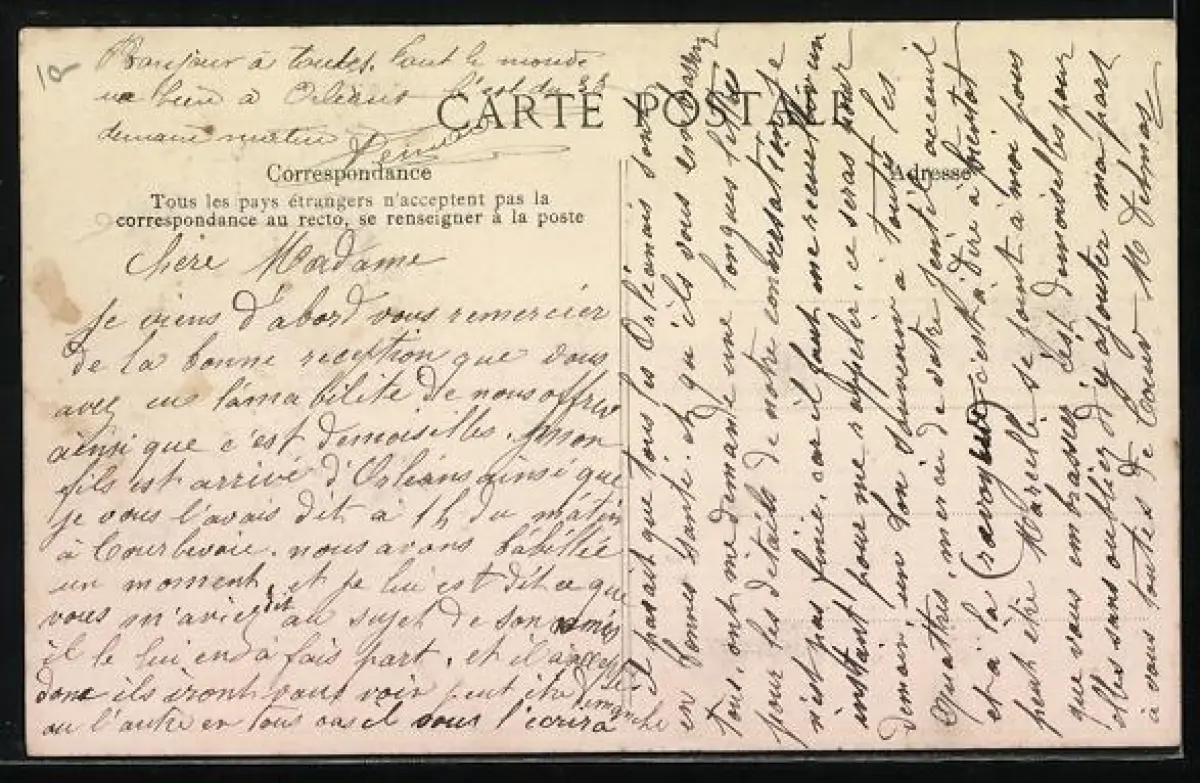 Bonjour à toutes. Tout le monde
va bien à Orléans
demain matin
CARTE POSTALE
Correspondance
Adresse
Tous les pays étrangers n'acceptent pas la
correspondance au recto, se renseigner à la poste
Chère Madame
Je viens d'abord vous remercier
de la bonne reception que vous
avez eus l'amabilité de nous offrir
ainsi que c'est demoiselles. mon
fils est arrivé d'Orléans ainsi que
je vous l'avais dit à 1h du matin
à Courbevoie. nous avons babillée
un moment, et je lui est dit ce que
vous m'aviez dit au sujet de son amis
il le lui en à fais part, et il
donc ils iront vous voir peut être Dimanche
ou l'autre en tous cas il vous l'écrira
il parait que tous les Orléanais sont
en bonnes santé. et qu'ils vous embrassent
tous, ont me demande une longue lettre
pour les détails de notre conversation je
n'est pas finie, car il faut me recueillir un
instant pour me rappeler, ce seras pour
demain, un bon souvenir a toutes les
quatres, merci de votre gentil accueil
et à la (revoyure) c'est à dire à bientôt
peut être Marcelle se joint à moi pour
que vous embrassiez c'est demoiselles pour
elles sans oublier d'y ajouter ma part
à vous toutes de Cœur M Delmas